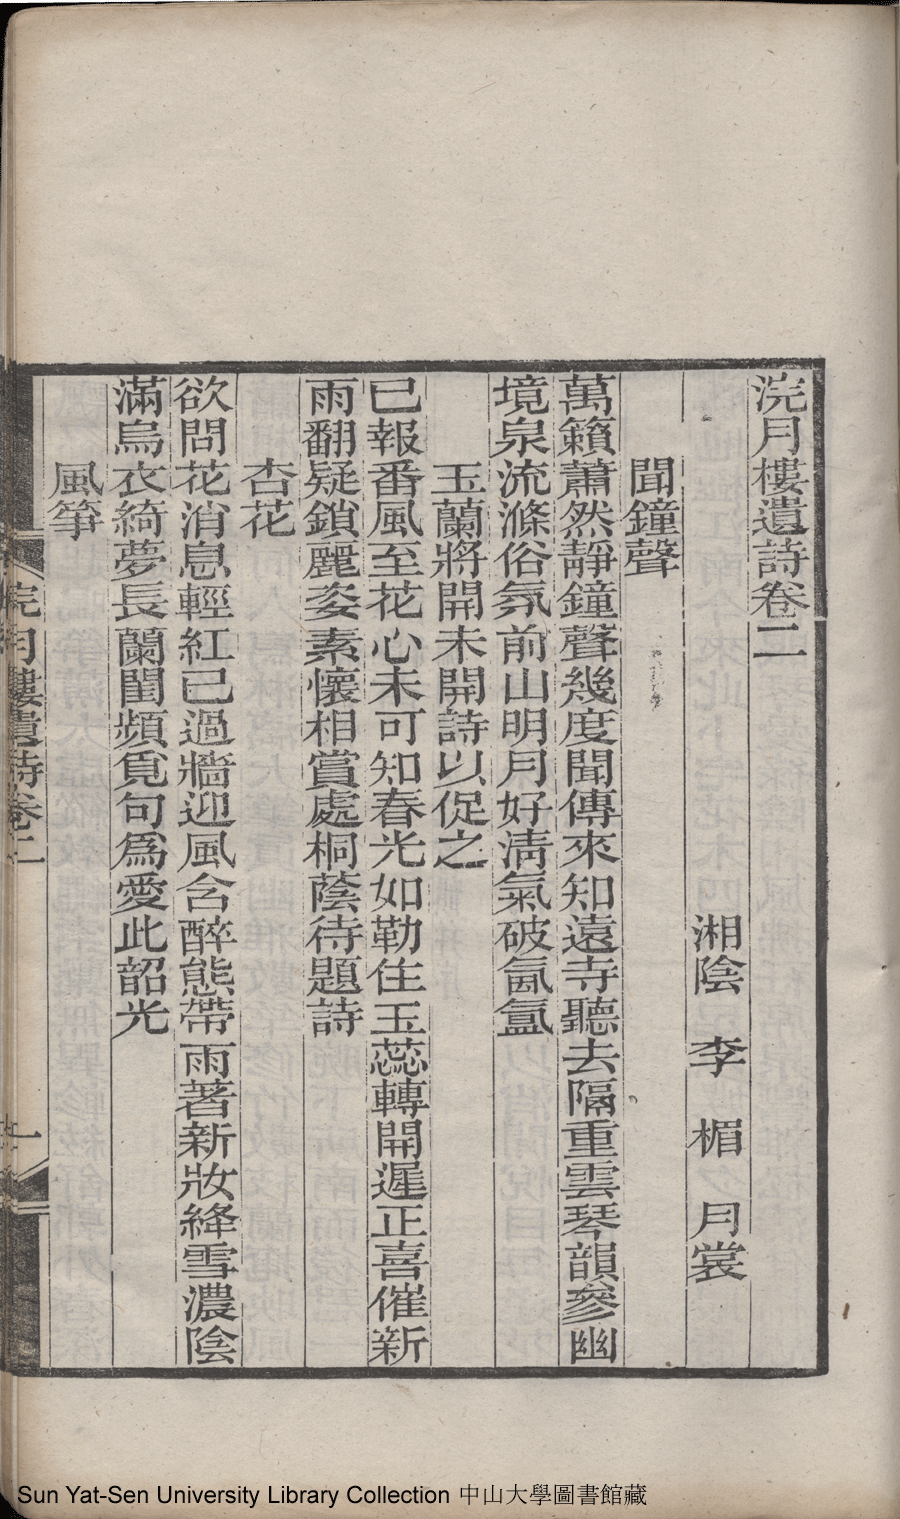 浣月樓遺詩卷二
湘陰 李 楣 月裳
聞鐘聲
萬籟蕭然靜鐘聲幾度聞傳來知遠寺聽去隔重雲琴韻參幽
境泉流滌俗氛前山明月好清氣破氤氳
玉蘭將開未開詩以促之
已報番風至花心未可知春光如勒住玉蕊轉開遲正喜催新
雨翻疑鎖麗姿素懷相賞處桐蔭待題詩
杏花
欲問花消息輕紅已過牆迎風含醉態帶雨著新妝絳雪濃陰
滿烏衣綺夢長蘭閨頻覓句爲愛此韶光
風箏
浣月樓遺詩卷二
一
Sun Yat-Sen University Library Collection 中山大學圖書館藏